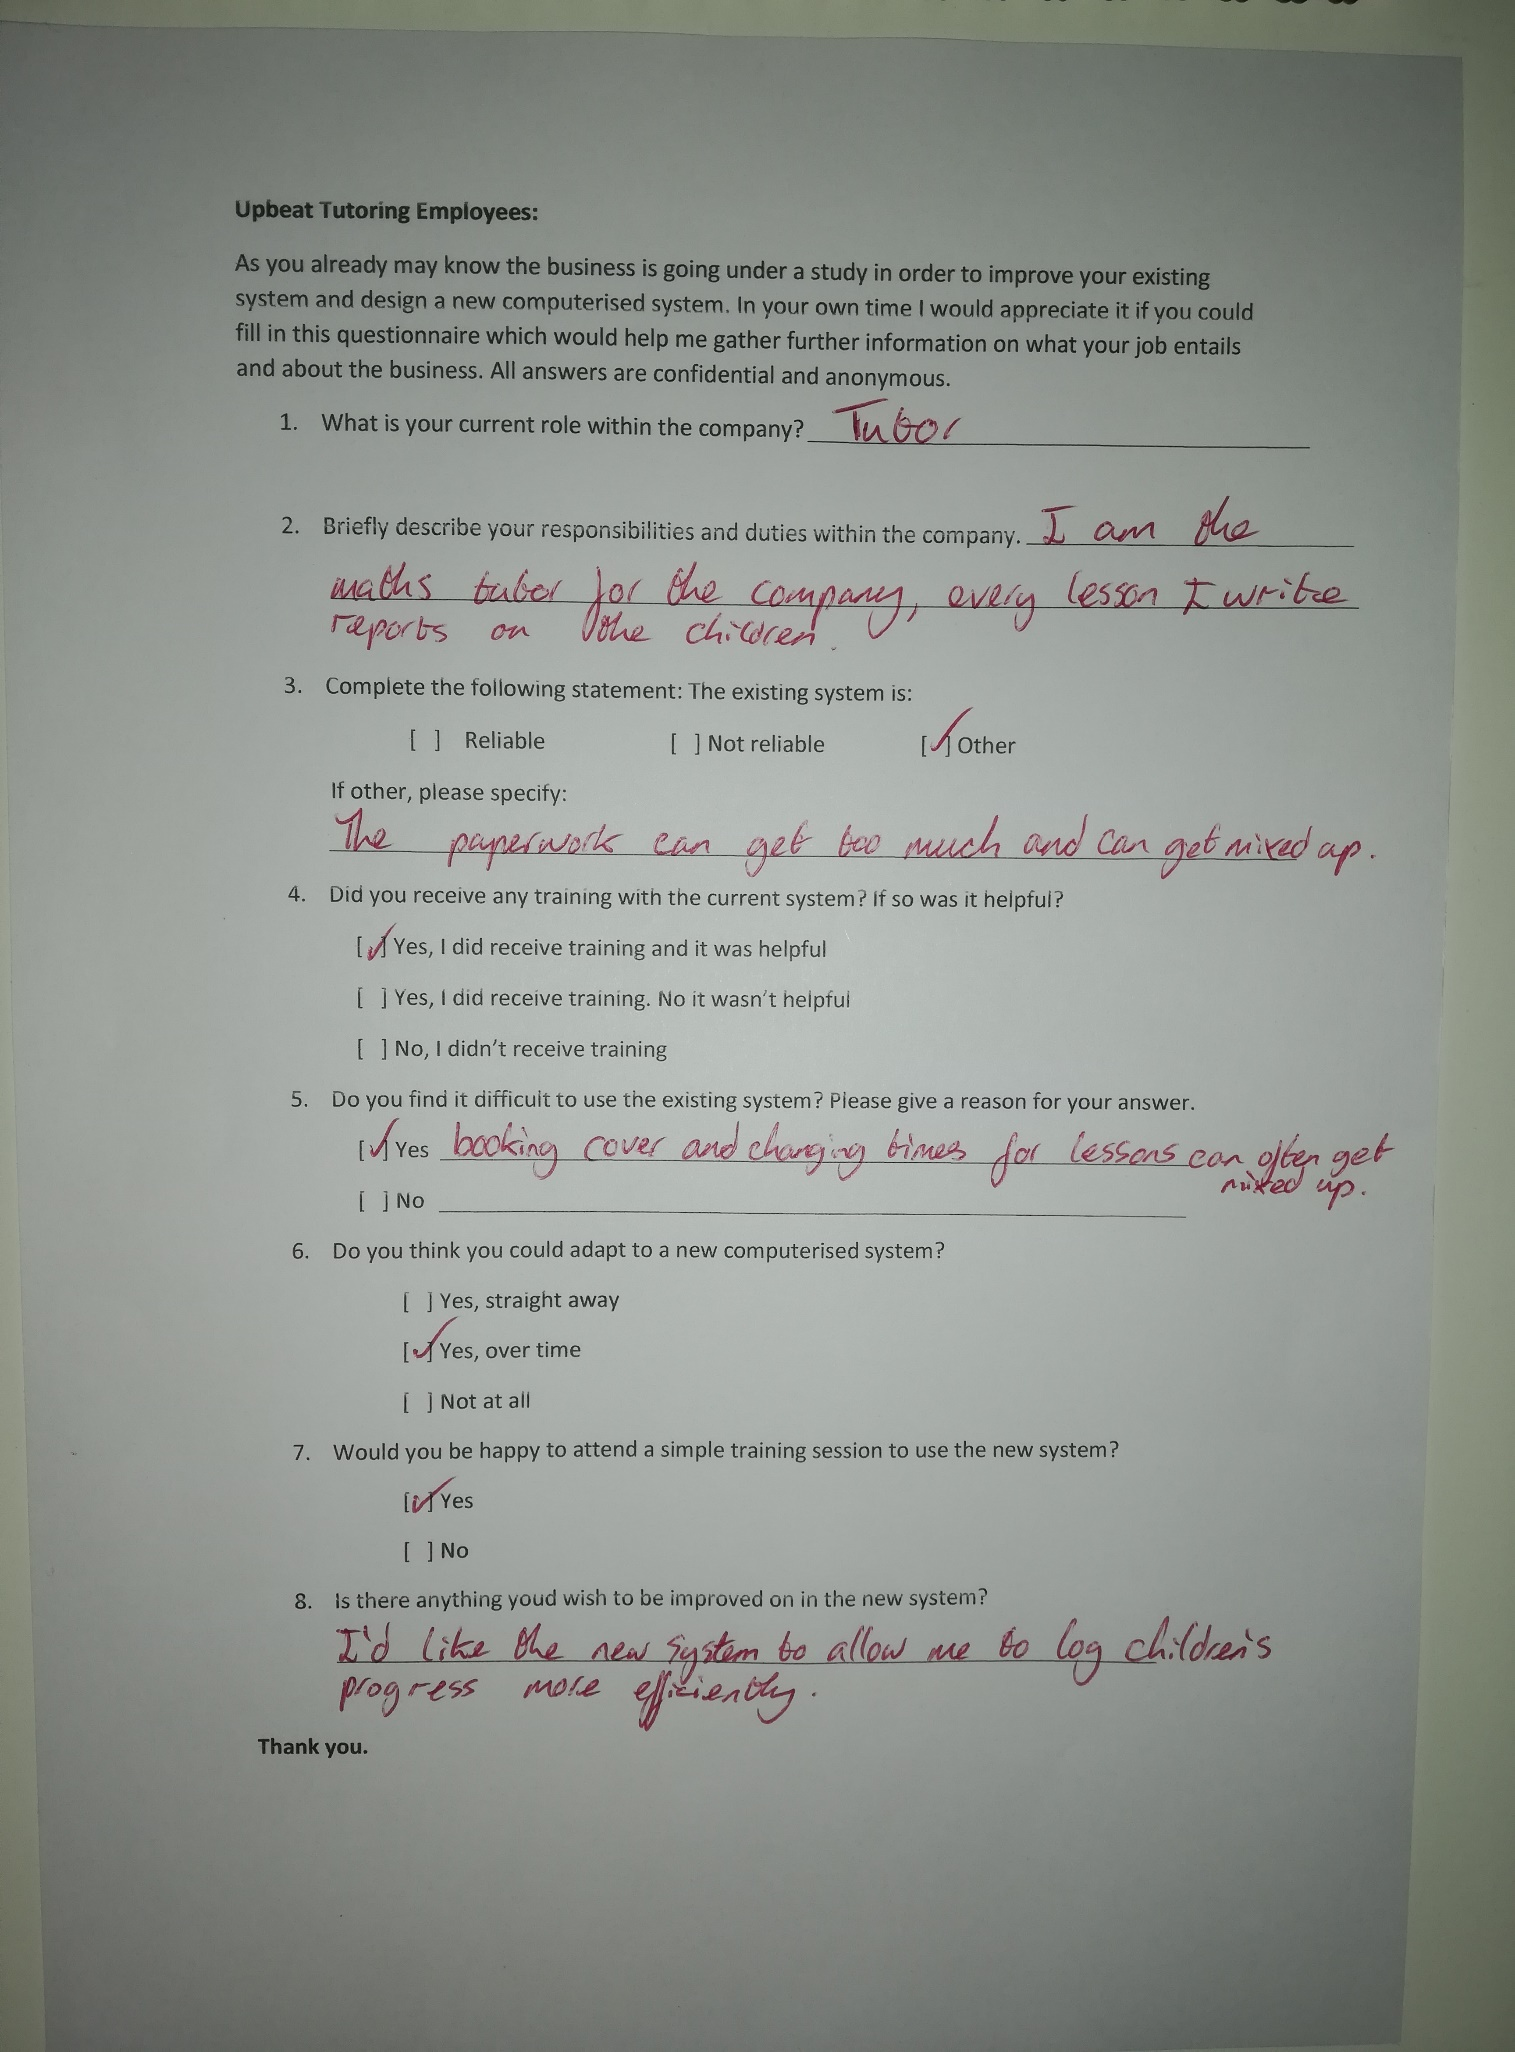 Upbeat Tutoring Employees:
As you already may know the business is going under a study in order to improve your existing
system and design a new computerised system. In your own time I would appreciate it if you could
fill in this questionnaire which would help me gather further information on what your job entails
and about the business. All answers are confidential and anonymous.
1. What is your current role within the company? Tutor
2. Briefly describe your responsibilities and duties within the company. I am the
maths tutor for the company, every lesson I write
reports on the children.
3. Complete the following statement: The existing system is:
[ ] Reliable [ ] Not reliable [✓] Other
If other, please specify:
The paperwork can get too much and can get mixed up.
4. Did you receive any training with the current system? If so was it helpful?
[✓] Yes, I did receive training and it was helpful
[ ] Yes, I did receive training. No it wasn't helpful
[ ] No, I didn't receive training
5. Do you find it difficult to use the existing system? Please give a reason for your answer.
[✓] Yes booking cover and changing times for lessons can often get
mixed up.
[ ] No
6. Do you think you could adapt to a new computerised system?
[ ] Yes, straight away
[✓] Yes, over time
[ ] Not at all
7. Would you be happy to attend a simple training session to use the new system?
[✓] Yes
[ ] No
8. Is there anything youd wish to be improved on in the new system?
I'd like the new system to allow me to log children's
progress more efficiently.
Thank you.